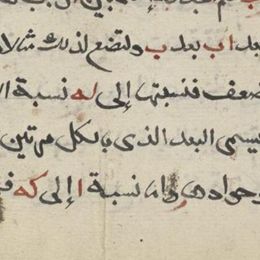 بعد ا ب بعد ب ولنضع لذلك مثالا
ضعف فنسبتها إلى له نسبة ا
يسمى البعد الذى بالكل مرتين
وحوادها واما نسبة ا إلى كه ف